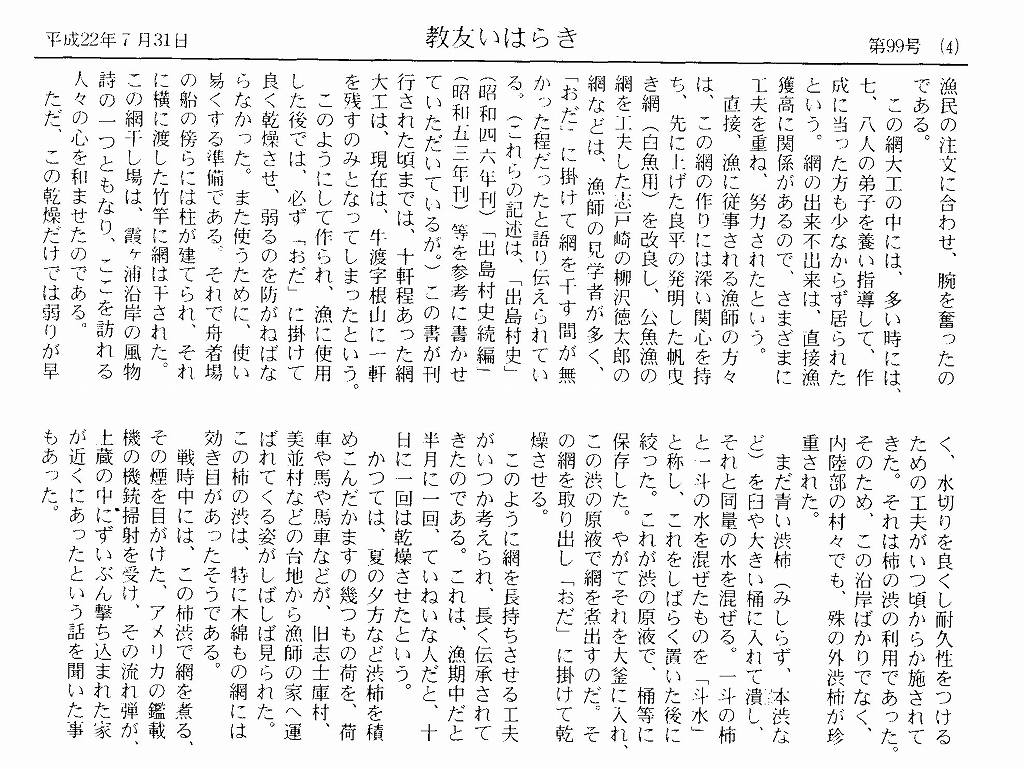 平成22年7月31日
教友いはらき
第99号 (4)
漁民の注文に合わせ、腕を奮ったの
である。
この網大工の中には、多い時には、
七、八人の弟子を養い指導して、作
成に当った方も少なからず居られた
という。網の出来不出来は、直接漁
獲高に関係があるので、さまざまに
工夫を重ね、努力されたという。
直接、漁に従事される漁師の方々
は、この網の作りには深い関心を持
ち、先に上げた良平の発明した帆曳
き網（白魚用）を改良し、公魚漁の
網を工夫した志戸崎の柳沢徳太郎の
網などは、漁師の見学者が多く、
「おだ」に掛けて網を干す間が無
かった程だったと語り伝えられてい
る。（これらの記述は、「出島村史」
（昭和四六年刊）「出島村史続編」
（昭和五三年刊）等を参考に書かせ
ていただいているが。）この書が刊
行された頃までは、十軒程あった網
大工は、現在は、牛渡字根山に一軒
を残すのみとなってしまったという。
このようにして作られ、漁に使用
した後では、必ず「おだ」に掛けて
良く乾燥させ、弱るのを防がねばな
らなかった。また使うために、使い
易くする準備である。それで舟着場
の船の傍らには柱が建てられ、それ
に横に渡した竹竿に網は干された。
この網干し場は、霞ヶ浦沿岸の風物
詩の一つともなり、ここを訪れる
人々の心を和ませたのである。
ただ、この乾燥だけでは弱りが早
く、水切りを良くし耐久性をつける
ための工夫がいつ頃からか施されて
きた。それは柿の渋の利用であった。
そのため、この沿岸ばかりでなく、
内陸部の村々でも、殊の外渋柿が珍
重された。
まだ青い渋柿（みしらず、本渋な
ど）を臼や大きい桶に入れて潰し、
それと同量の水を混ぜる。一斗の柿
と一斗の水を混ぜたものを「斗水」
と称し、これをしばらく置いた後に
絞った。これが渋の原液で、桶等に
保存した。やがてそれを大釜に入れ、
この渋の原液で網を煮出すのだ。そ
の網を取り出し「おだ」に掛けて乾
燥させる。
このように網を長持ちさせる工夫
がいつか考えられ、長く伝承されて
きたのである。これは、漁期中だと
半月に一回、ていねいな人だと、十
日に一回は乾燥させたという。
かつては、夏の夕方など渋柿を積
めこんだかますの幾つもの荷を、荷
車や馬や馬車などが、旧志士庫村、
美並村などの台地から漁師の家へ運
ばれてくる姿がしばしば見られた。
この柿の渋は、特に木綿もの網には
効き目があったそうである。
戦時中には、この柿渋で網を煮る、
その煙を目がけた、アメリカの艦載
機の機銃掃射を受け、その流れ弾が、
土蔵の中にずいぶん撃ち込まれた家
が近くにあったという話を聞いた事
もあった。